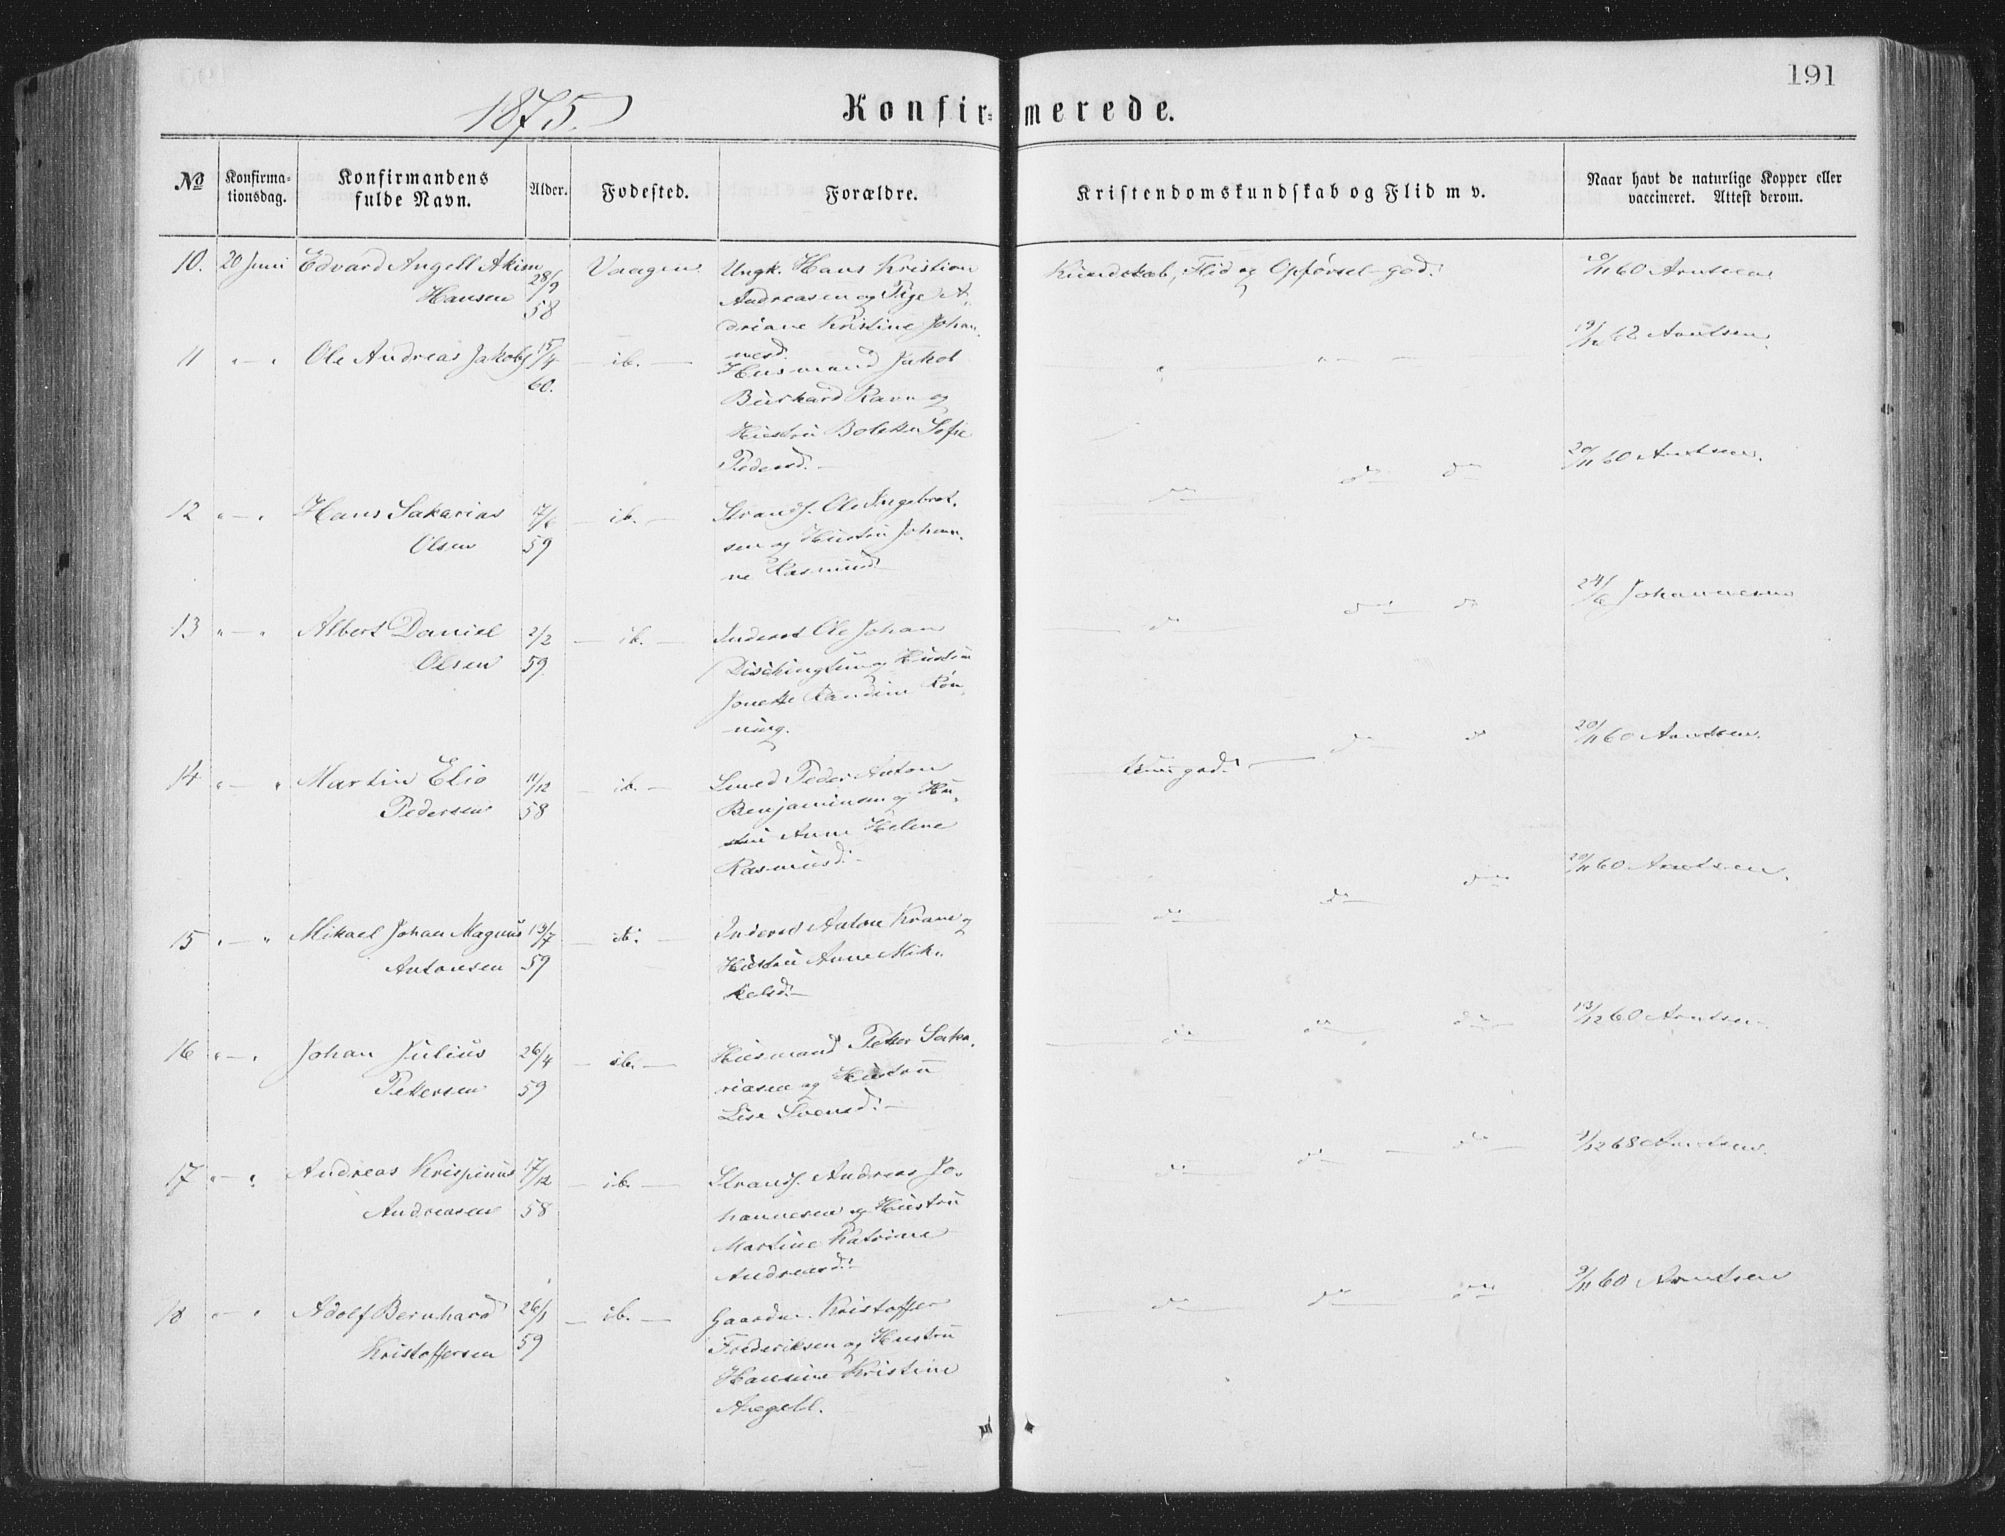 191
1875.
Konfirmerede.
№
Konfirma-
tionsdag.
Konfirmandens
fulde Navn.
Alder.
Fødested.
Forældre.
Kristendomskundskab og Flid m v.
Naar havt de naturlige Kopper eller
vaccineret. Attest derom.
10. 20 Juni Edvard Angell Akim Vaagen Ungk. Hans Kristian Kundskab, Flid og Opførsel god. 60 Arntsen
Hansen 28/9 58 Andreasen og Pige A-
driane Kristine Johan-
nesd.
11 " — " Ole Andreas Jakobs 15/4 60. — ib. — Husmand Jakob 19/12 62 Arntsen
Burkard Ravn og
Hustru Bolette Sofie
Pedersd. —
12 " — " Hans Sakarias 17/6 — ib. — Strands. Ole Ingebret- do do do 20/11 60 Arntsen.
Olsen 59 sen og Hustru Johan-
ne Rasmusd.
13 " — " Albert Daniel 2/2 — ib. — Inderst Ole Johan do do do 24/6 Johannesen
Olsen 59 og Hustru
Jonette Røn-
ning.
14 " — " Martin Elio 11/12 — ib. — Smed Peder Anton god. do do 20/11 60 Arntsen.
Pedersen 58 Benjaminsen og Hu-
stru Anne Helene
Rasmusd. —
15 " — " Mikael Johan Magnus 13/7 — ib. — Inderst Anton Krane og do do do 20/11 60 Arntsen.
Antonsen 59 Hustru Anne Mik-
kelsd. —
16 " — " Johan Julius 26/4 — ib. — Husmand Petter Saka- do do do 13/12 60 Arntsen
Pettersen 59 riasen og Hustru
Lise Svensd. —
17 " — " Andreas Krispinus 17/12 — ib. — Strands. Andreas Jo- do do do /12 68 Arntsen.
Andreasen 58 hannesen og Hustru
Martine Katrine
Andreasd. —
18 " — " Adolf Bernhard 26/1 — ib. — Gaardm. Kristoffer do do do 9/11 60 Arntsen
Kristoffersen 59 Frederiksen og Hustru
Hansine Kristine
Angell.